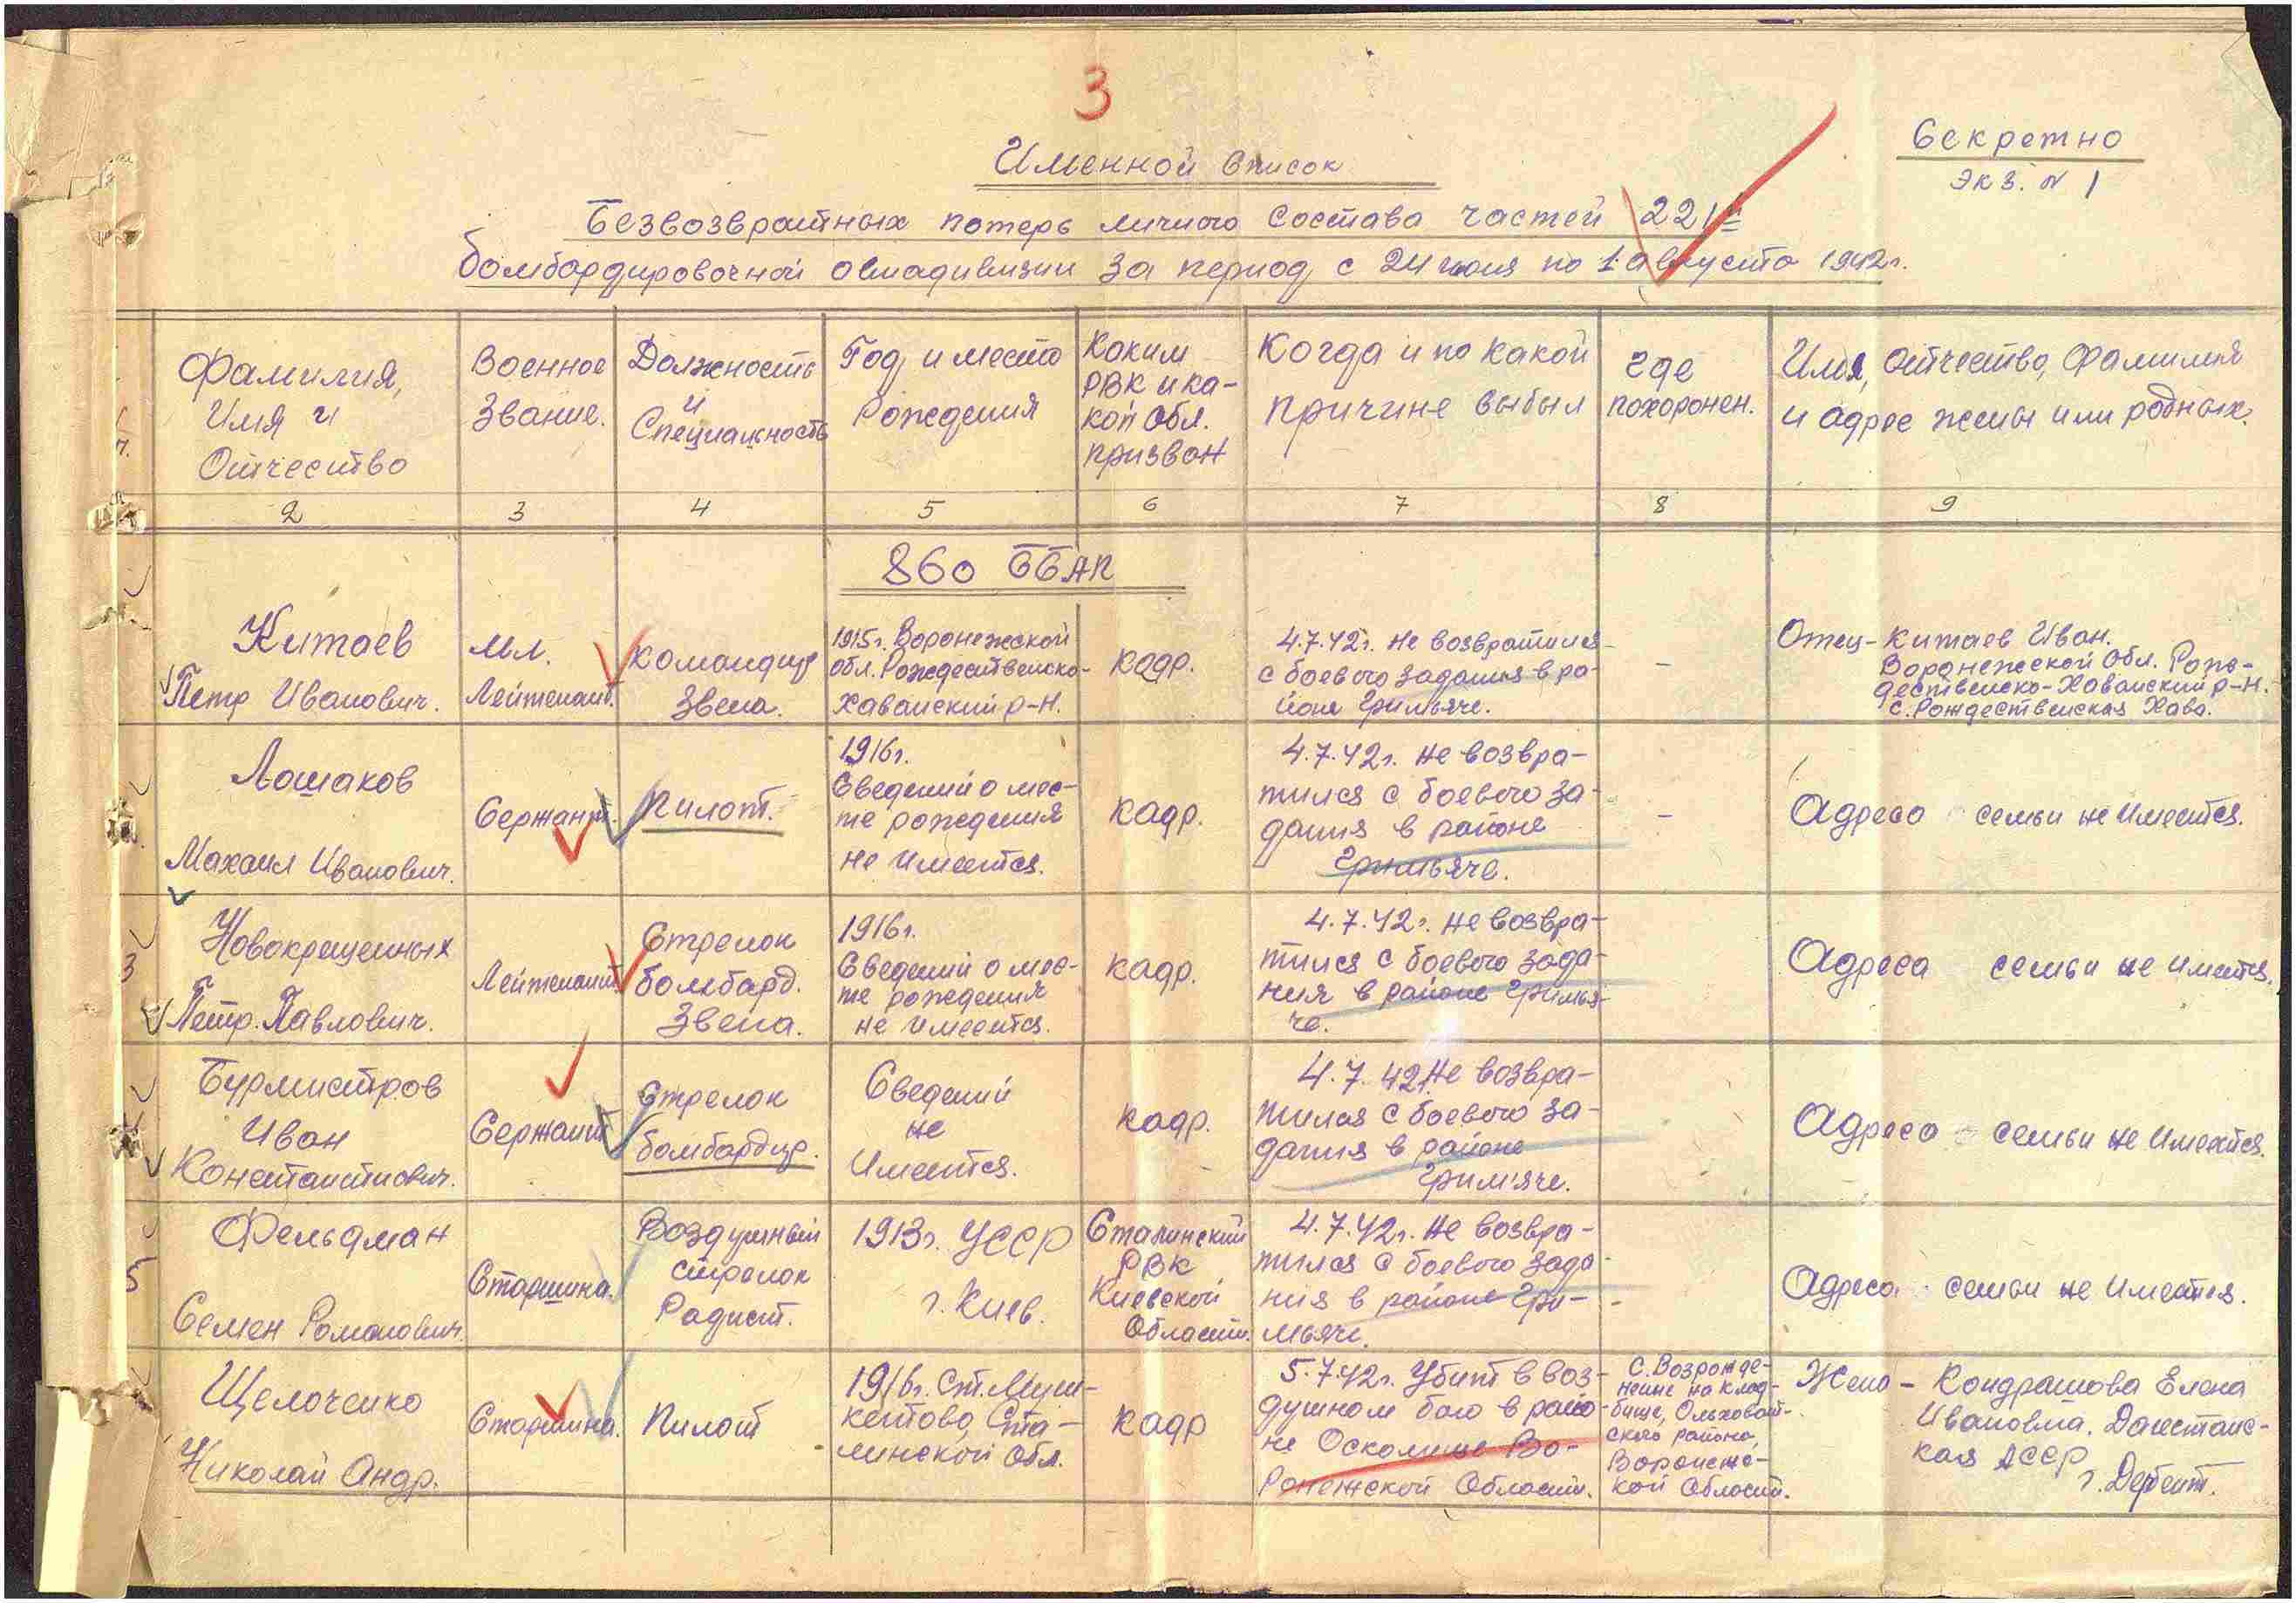 3
Секретно
Экз. № 1
Именной список
Безвозвратных потерь личного состава частей 221й
бомбардировочной авиадивизии за период с 24 июля по 1 августа 1942г.
Фамилия,
Имя и
Отчество
Военное
Звание.
Должность
и
Специальность
Год и место
Рождения
Каким
РВК и ка-
кой обл.
призван
Когда и по какой
причине выбыл
Где
похоронен.
Имя, отчество, фамилия
и адрес жены или родных.
2 3 4 5 6 7 8 9
860 ББАП
Китаев
Петр Иванович.
Мл.
Лейтенант.
Командир
Звена.
1915г. Воронежской
обл. Рождественско-
Хаванский р-н.
кадр.
4.7.42г. Не возвратился
с боевого задания в ра-
йоне Гримьяче.
-
Отец - Китаев Иван.
Воронежской обл. Рож-
дественско-Хаванский р-н.
с. Рождественская Хава.
Лошаков
Михаил Иванович.
Сержант.
Пилот.
1916г.
Сведений о мес-
те рождения
не имеется.
кадр.
4.7.42г. Не возвра-
тился с боевого за-
дания в районе
Гримьяче.
-
Адреса семьи не имеется.
3
Новокрещенных
Петр Павлович.
Лейтенант
Стрелок
бомбард.
Звена.
1916г.
Сведений о мес-
те рождения
не имеется.
кадр.
4.7.42г. Не возвра-
тился с боевого зада-
ния в районе Гримья-
че.
Адреса семьи не имеется.
Бурмистров
Иван
Константинович.
Сержант
Стрелок
бомбардир.
Сведений
не
Имеется.
кадр.
4.7.42г. Не возвра-
тился с боевого за-
дания в районе
Грим'яче.
Адреса семьи не имеется.
5
Фельдман
Семен Романович.
Старшина.
Воздушный
стрелок
Радист.
1913г. УССР
г. Киев.
Сталинский
РВК
Киевской
Области.
4.7.42г. Не возвра-
тился с боевого зада-
ния в районе Гри-
мьяче.
-
Адреса семьи не имеется.
Щелоченко
Николай Андр.
Старшина.
Пилот
1916г. Ст. Муш-
кетово, Ста-
линской обл.
кадр
5.7.42г. Убит в воз-
душном бою в райо-
не Во-
ронежской Области.
С. Возрожде-
ние на клад-
бище, Ольховат-
ского района,
Воронежс-
кой Области.
Жена - Кондрашова Елена
Ивановна. Дагестанс-
кая АССР
г. Дербент.